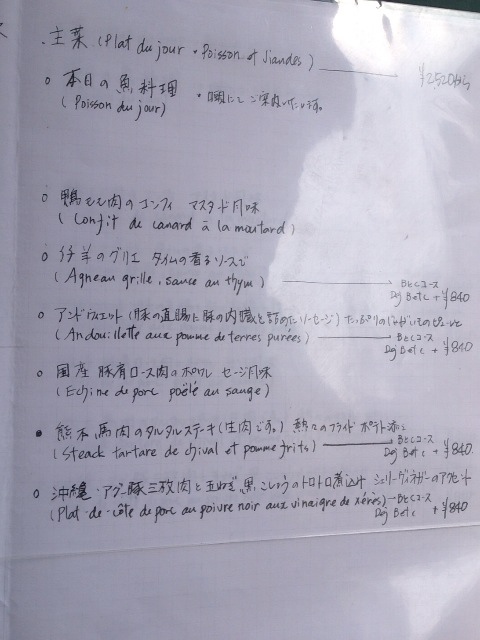 ・主菜 (Plat du jour・Poisson et Viandes) ¥2520から
○ 本日の魚料理 ・口頭にてご案内いたします。
(Poisson du jour)
○ 鴨もも肉のコンフィ マスタード風味
(Confit de canard à la moutard)
○ 仔羊のグリエ タイムの香るソースで
(Agneau grille, sauce au thym) BとCコース
Dej BetC + ¥840
○ アンドゥイエット (豚の直腸に豚の内臓を詰めたソーセージ) たっぷりのじゃがいものピューレと
(Andouillette aux pomme de terres purées) BとCコース
Dej Bet C + ¥840
○ 国産 豚肩ロース肉のポワレ セージ風味
(Echine de porc poêlé au sauge)
● 熊本 馬肉のタルタルステーキ (生肉です。) 熱々のフライドポテト添え
(Steack tartare de chival et pomme frits) BとCコース
Dej Bet C + ¥840
○ 沖縄・アグー豚三枚肉と 黒こしょうのトロトロ煮込み シェリーヴィネガーのアクセント
(Plat-de-côte de porc au poivre noir aux vinaigre de xérès) BとCコース
Dej Bet C + ¥840